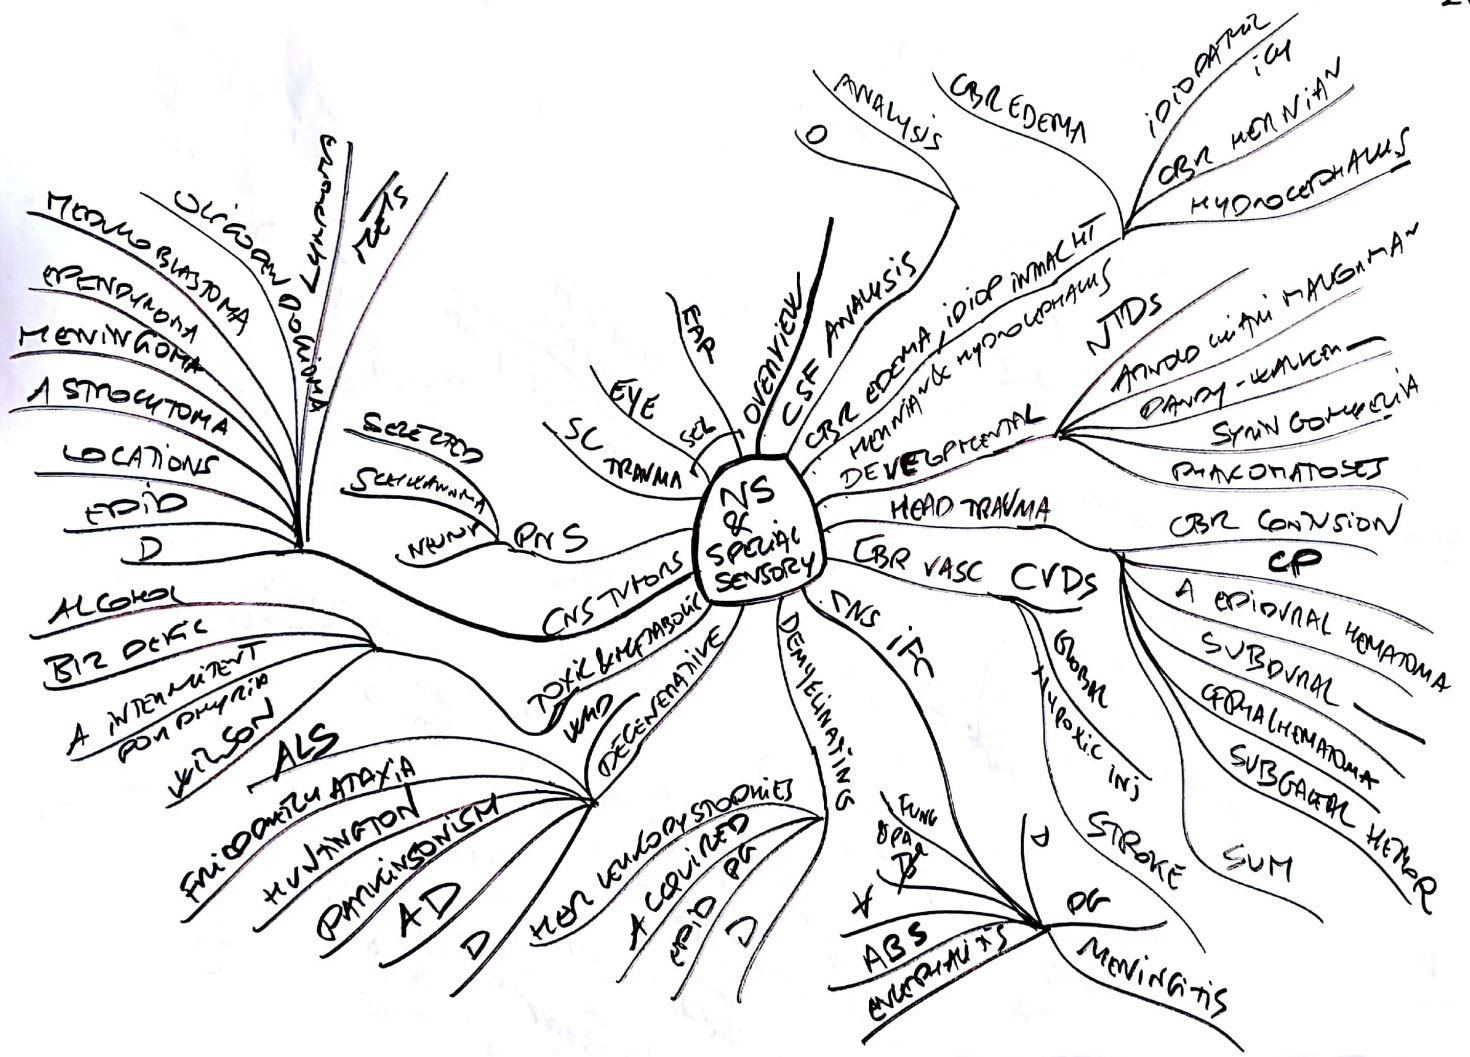 NS
&
SPECIAL
SENSORY
OVERVIEW
CSF ANALYSIS
O
ANALYSIS
CBR EDEMA, IDIOP INTRACHT
HERNIAN & HYDROCEPHALUS
CBR EDEMA
IDIOPATHIC
ICH
CBR HERNIAN
HYDROCEPHALUS
DEVELOPMENTAL
NTDs
ARNOLD CHIARI MALFORMAN
DANDY-WALKER —
SYRINGOMYELIA
PHAKOMATOSES
HEAD TRAUMA
CBR CONTUSION
CP
A EPIDURAL HEMATOMA
SUBDURAL —
CEPHALHEMATOMA
SUBGALEAL HEMOR
SUM
CBR VASC CVDs
GLOBAL
HYPOXIC INJ
STROKE
SNS IFC
D
PG
MENINGITIS
ENCEPHALITIS
ABS
V
B
PAR
FUNG
DEMYELINATING
HER LEUKODYSTROPHIES
ACQUIRED
PG
EPID
D
DEGENERATIVE
ALS
FRIEDREICH ATAXIA
HUNTINGTON
PARKINSONISM
AD
D
TOXIC & METABOLIC
ALCOHOL
B12 DEFIC
A INTERMITENT
PORPHYRIA
WILSON
CNS TUMORS
D
EPID
LOCATIONS
ASTROCYTOMA
MENINGIOMA
EPENDYMOMA
MEDULLOBLASTOMA
OLIGODENDROGLIOMA
LYMPHOMA
METS
PNS
SELECTED
SCHWANNOMA
SC
TRAUMA
EYE
EAR